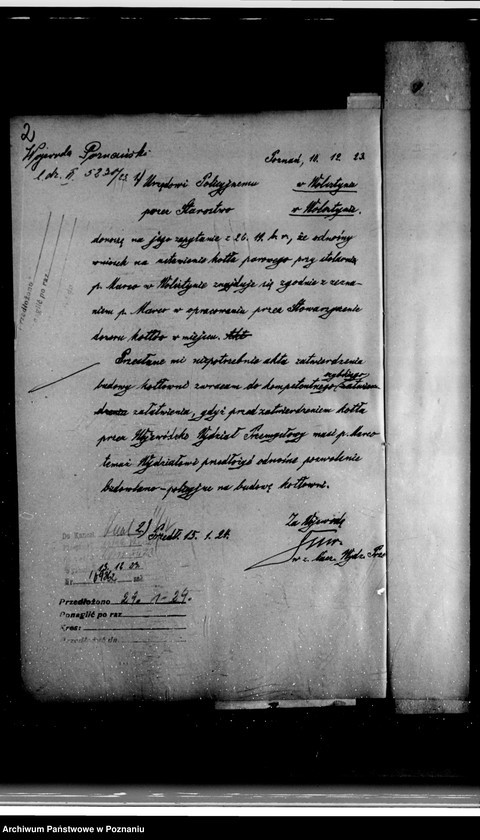 2
Wojewoda Poznański
l. dz. II. 5230/23
Poznań, 10. 12. 23.
Urzędowi Policyjnemu w Wolsztynie
przez Starostwo w Wolsztynie.
donoszę na jego zapytanie z 26. 11. b. r., że odnośny
wniosek na ustawienie kotła parowego przy stolarni
p. Marco w Wolsztynie znajduje się zgodnie z zezna-
niem p. Marco w opracowaniu przez Stowarzyszenie
dozoru kotłów w miejscu.
Przesłane mi niepotrzebnie akta zatwierdzenia
budowy kotłowni zwracam do kompetentnego szybkiego
załatwienia, gdyż przed zatwierdzeniem kotła
przez Wojewódzki Wydział Przemysłowy musi p. Marco
temuż Wydziałowi przedłożyć odnośne pozwolenie
budowlano-policyjne na budowę kotłowni.
Za Wojewodę
Przedł. 15. 1. 24.
Nr.
Przedłożono 29. 1. 24.
Ponaglić po raz
Kresz:
Przedłożyć dn.
Archiwum Państwowe w Poznaniu